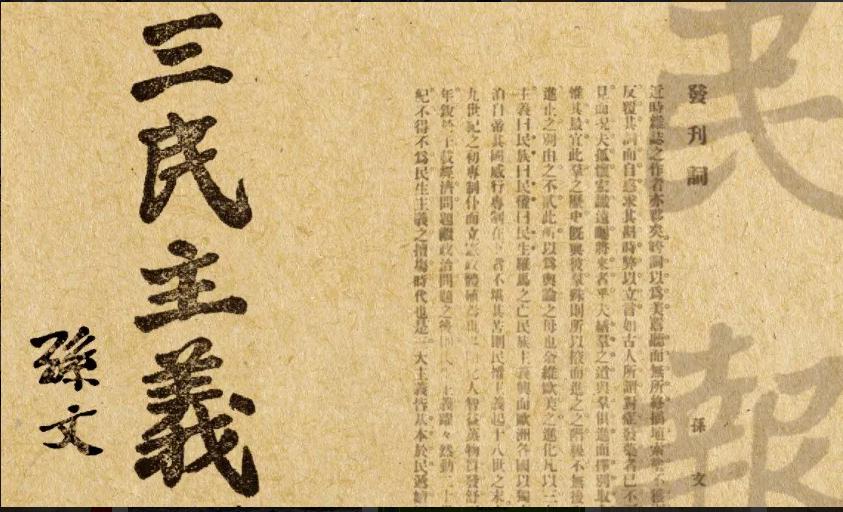 民報
發刊詞
孫文
近時雜誌之作者亦夥矣姱詞以爲美囂聽而無所終摘埴索塗不獲
反覆其詞而自惑求其斟時弊以立言如古人所謂對症發藥者已不
見而況夫孤懷宏識遠矚將來者乎夫繕羣之道與羣俱進而擇別取
惟其最宜此羣之歷史既與彼羣殊則所以掖而進之之階級不無後
進止之別由之不貳此所以爲輿論之母也余維歐美之進化凡以三
主義曰民族曰民權曰民生羅馬之亡民族主義興而歐洲各國以獨
洎自帝其國威行專制在下者不堪其苦則民權主義起十八世之末
九世紀之初專制仆而立憲政體殖焉世人智益蒸物質發舒
年銳於千載經濟問題繼政治問題之後主義躍々然動二十
紀不得不爲民生主義之擅場時代也是三大主義皆基本於民遞嬗
三民主義
孫文